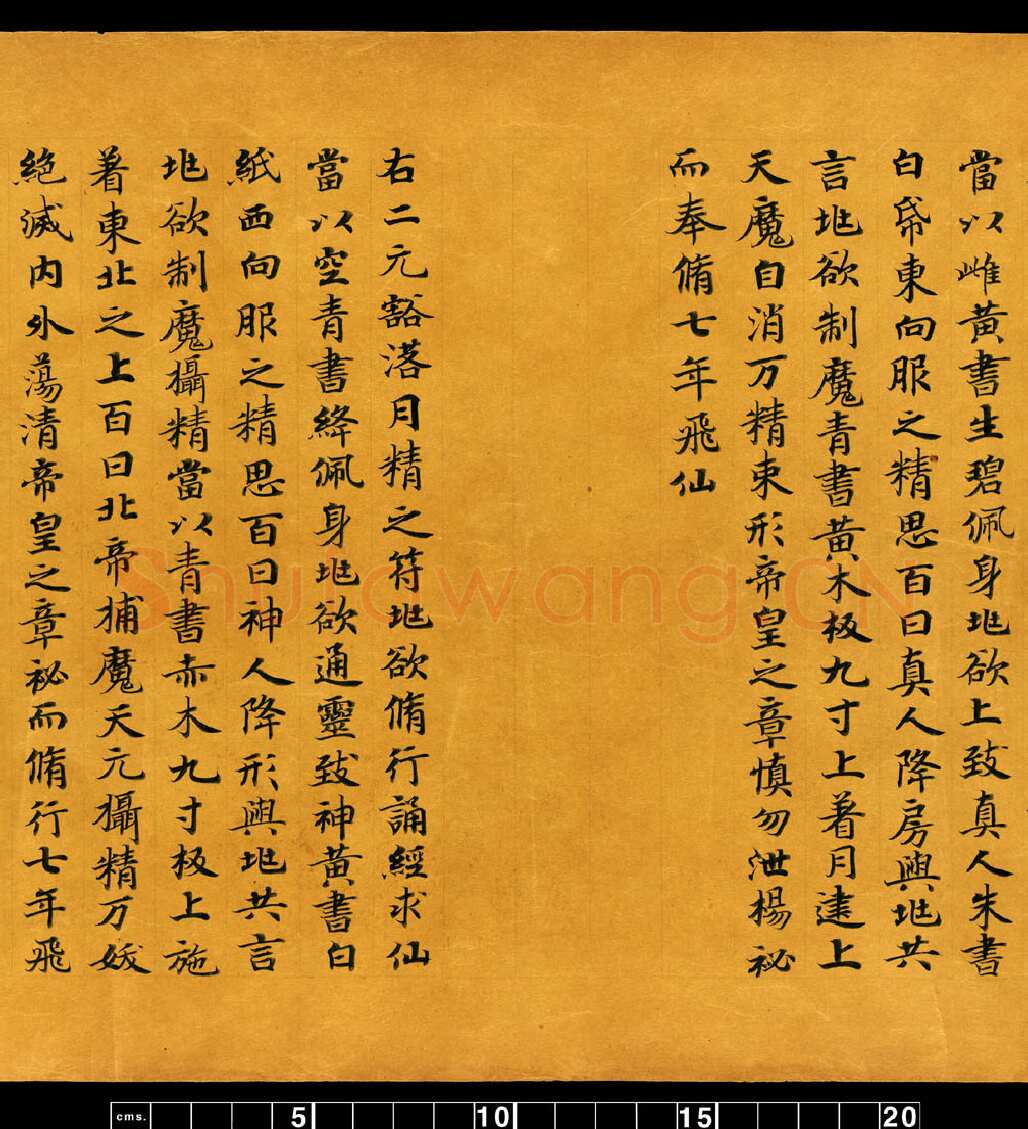 當以雌黃書生碧佩身兆欲上致真人朱書
白帋東向服之精思百日真人降房與兆共
言兆欲制魔青書黃木板九寸上著月建上
天魔自消万精束形帝皇之章慎勿泄楊祕
而奉脩七年飛仙
右二元豁落月精之符兆欲脩行誦經求仙
當以空青書絳佩身兆欲通靈致神黃書白
紙西向服之精思百日神人降形與兆共言
兆欲制魔攝精當以青書赤木九寸板上施
著東北之上百日北帝捕魔天元攝精万妖
絕滅内外蕩清帝皇之章祕而脩行七年飛
Shufawang.CN
cms. 5 10 15 20